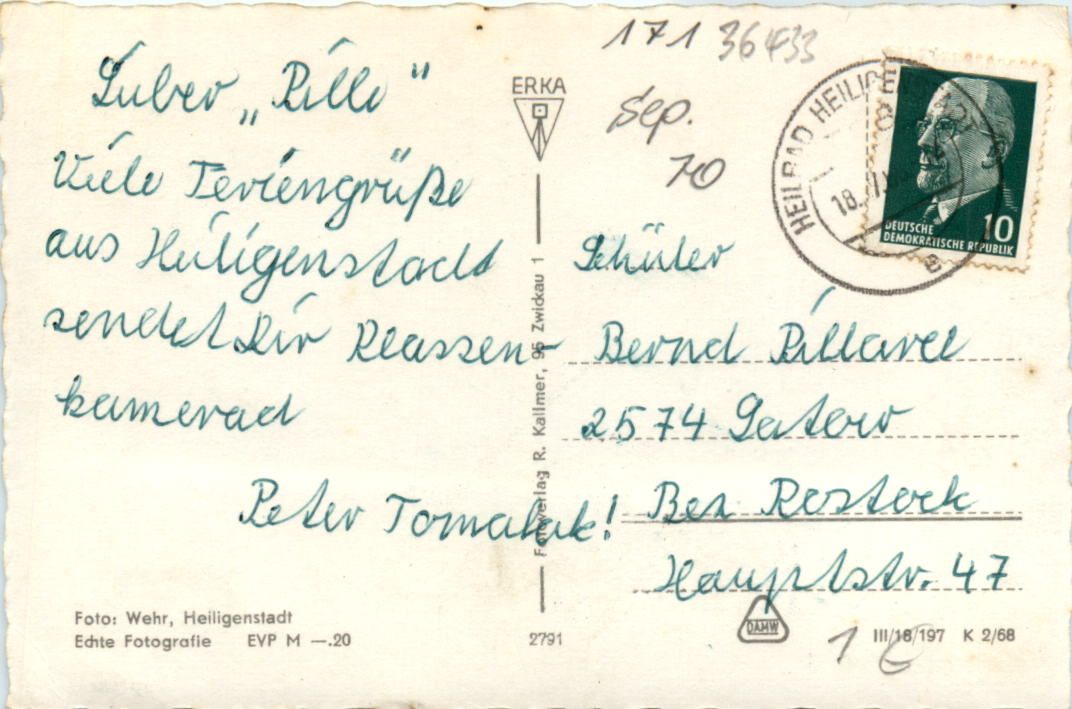 Lieber „Pille"
Viele Feriengrüße
aus Heiligenstadt
sendet Dir Klassen-
kamerad
Peter Tomalak!
Foto: Wehr, Heiligenstadt
Echte Fotografie EVP M —.20
ERKA
Fotoverlag R. Kallmer, 95 Zwickau 1
2791
171 36433
Sep.
70
HEILBAD HEILIGE
18.
e
DEUTSCHE
DEMOKRATISCHE REPUBLIK
10
Schüler
Bernd Pillarel
2574 Satow
Bez Rostock
Hauptstr. 47
DAMW
III/18/197 K 2/68
1 €